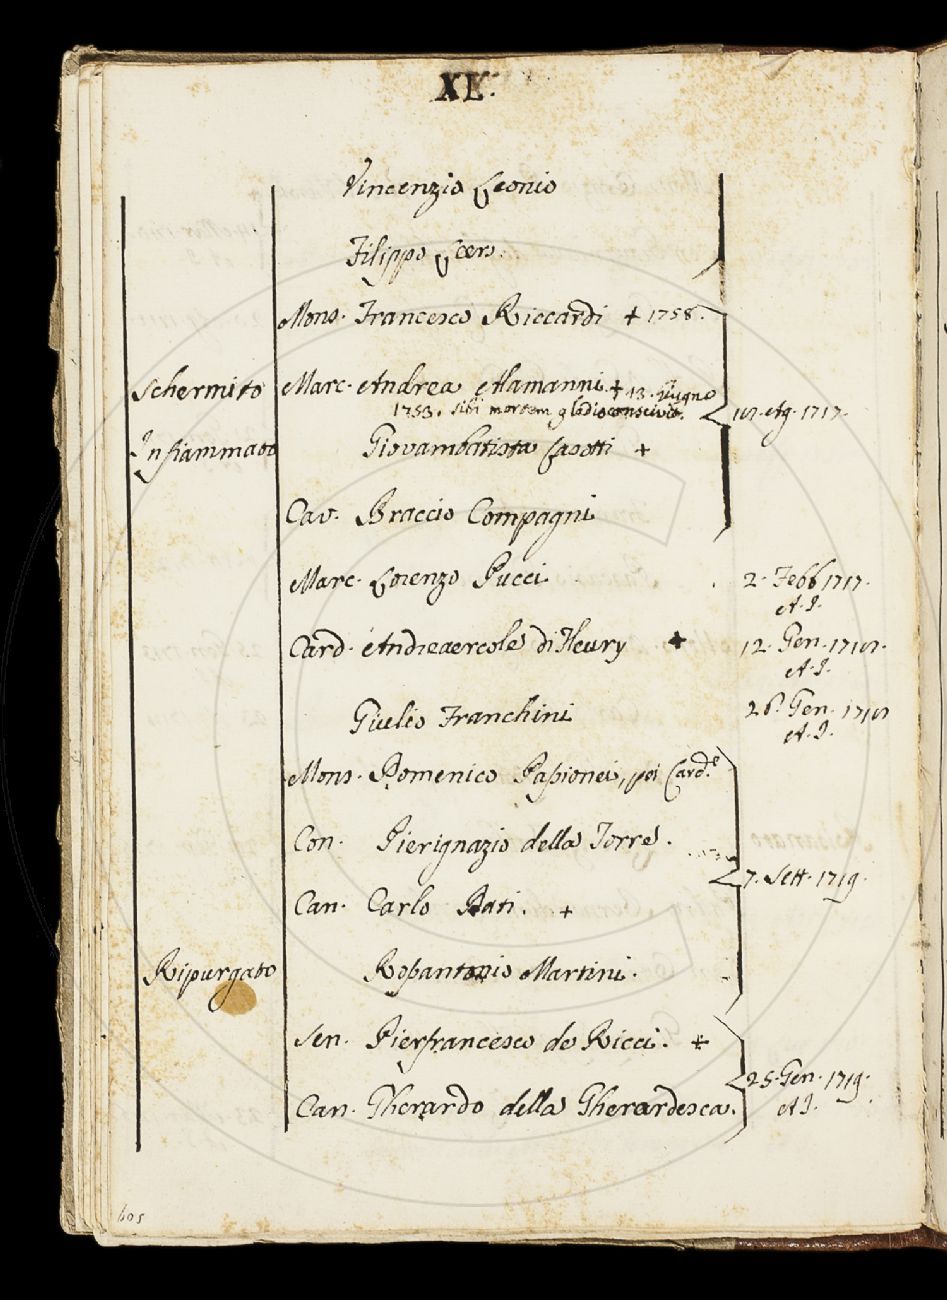 XL.
Vincenzio Leonio
Filippo Leers.
Mons. Francesco Riccardi + 1758.
Schermito Marc. Andrea Alamanni. + 13. Giugno
1753. sibi mortem gladio conscivit. Ag. 1717.
Infiammato Giovambatista Casotti +
Cav. Braccio Compagni
Marc. Lorenzo Pucci 2. Febb 1717.
A. I.
Card. Andreaercole di Fleury + 12. Gen.
A. I.
Giulio Franchini 26. Gen.
A. I.
Mons. Domenico Passionei, poi Card.e
Con. Pierignazio della Torre.
7. Sett. 1719.
Can. Carlo Dati. +
Ripurgato Rosantonio Martini.
Sen. Pierfrancesco de Ricci. +
25. Gen. 1719.
Can. Gherardo della Gherardesca. A I.
605